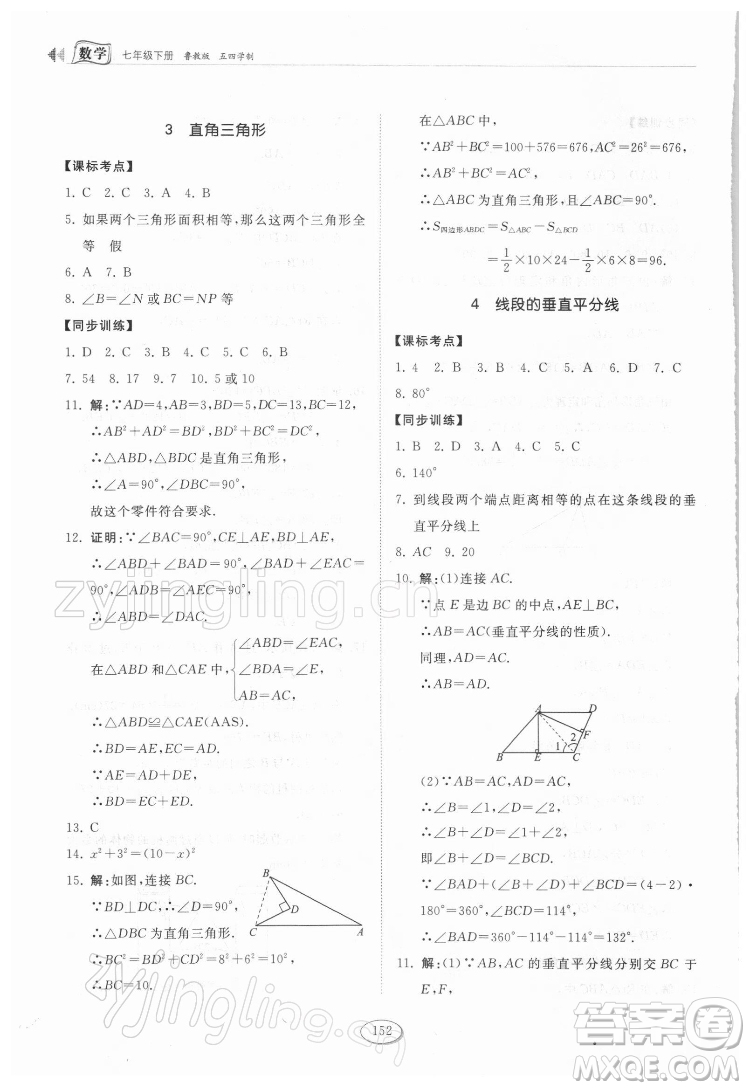 数学 七年级下册 鲁教版 五四学制
3 直角三角形
【课标考点】
1. C 2. C 3. A 4. B
5. 如果两个三角形面积相等,那么这两个三角形全
等 假
6. A 7. B
8. ∠B=∠N或BC=NP等
【同步训练】
1. D 2. C 3. D 4. A 5. B 6. C
7. 54 8. 17 9. 7 10. 5或10
11. 解:∵AD=4,AB=3,BD=5,DC=13,BC=12,
∴AB²+AD²=BD²,BD²+BC²=DC²,
∴△ABD,△BDC是直角三角形,
∴∠A=90°,∠DBC=90°,
故这个零件符合要求.
12. 证明:∵∠BAC=90°,CE⊥AE,BD⊥AE,
∴∠ABD+∠BAD=90°,∠BAD+∠DAC=
90°,∠ADB=∠AEC=90°,
∴∠ABD=∠DAC.
在△ABD和△CAE中,
∠ABD=∠EAC,
∠BDA=∠E,
AB=AC,
∴△ABD≌△CAE(AAS).
∴BD=AE,EC=AD.
∵AE=AD+DE,
∴BD=EC+ED.
13. C
14. x²+3²=(10-x)²
15. 解:如图,连接BC.
∵BD⊥DC,∴∠D=90°,
∴△DBC为直角三角形.
∴BC²=BD²+CD²=6²+8²=10²,
∴BC=10.
B
D
C
A
在△ABC中,
∵AB²+BC²=100+576=676,AC²=26²=676,
∴AB²+BC²=AC²,
∴△ABC为直角三角形,∠ABC=90°.
∴S四边形ABDC=S△ABC-S△BCD
=1/2×10×24-1/2×6×8=96.
4 线段的垂直平分线
【课标考点】
1. 4 2. B 3. B 4. C 5. A 6. D 7. C
8. 80°
【同步训练】
1. B 2. D 3. A 4. C 5. C
6. 140°
7. 到线段两个端点距离相等的点在这条线段的垂
直平分线上
8. AC 9. 20
10. 解:(1)连接AC.
∵点E是边BC的中点,AE⊥BC,
∴AB=AC(垂直平分线的性质).
同理,AD=AC,
∴AB=AD.
A D
2 F
1
B E C
(2)∵AB=AC,AD=AC,
∴∠B=∠1,∠D=∠2,
∴∠B+∠D=∠1+∠2,
即∠B+∠D=∠BCD.
∵∠BAD+(∠B+∠D)+∠BCD=(4-2)·
180°=360°,∠BAD=114°,
∴∠BCD=360°-114°-114°=132°.
11. 解:(1)∵AB,AC的垂直平分线分别交BC于
E,F,
152
zyjingling.cn
zyjingling.cn
答案卷
MXQE.COM